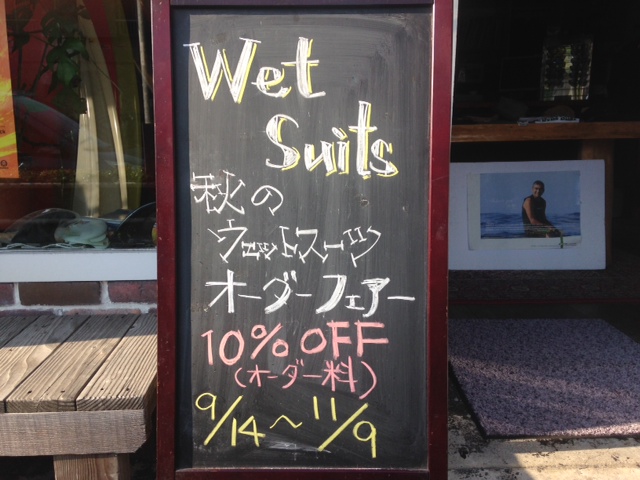 Wet
Suits
秋の
ウェットスーツ
オーダーフェアー
10% OFF
(オーダー料)
9/14～11/9